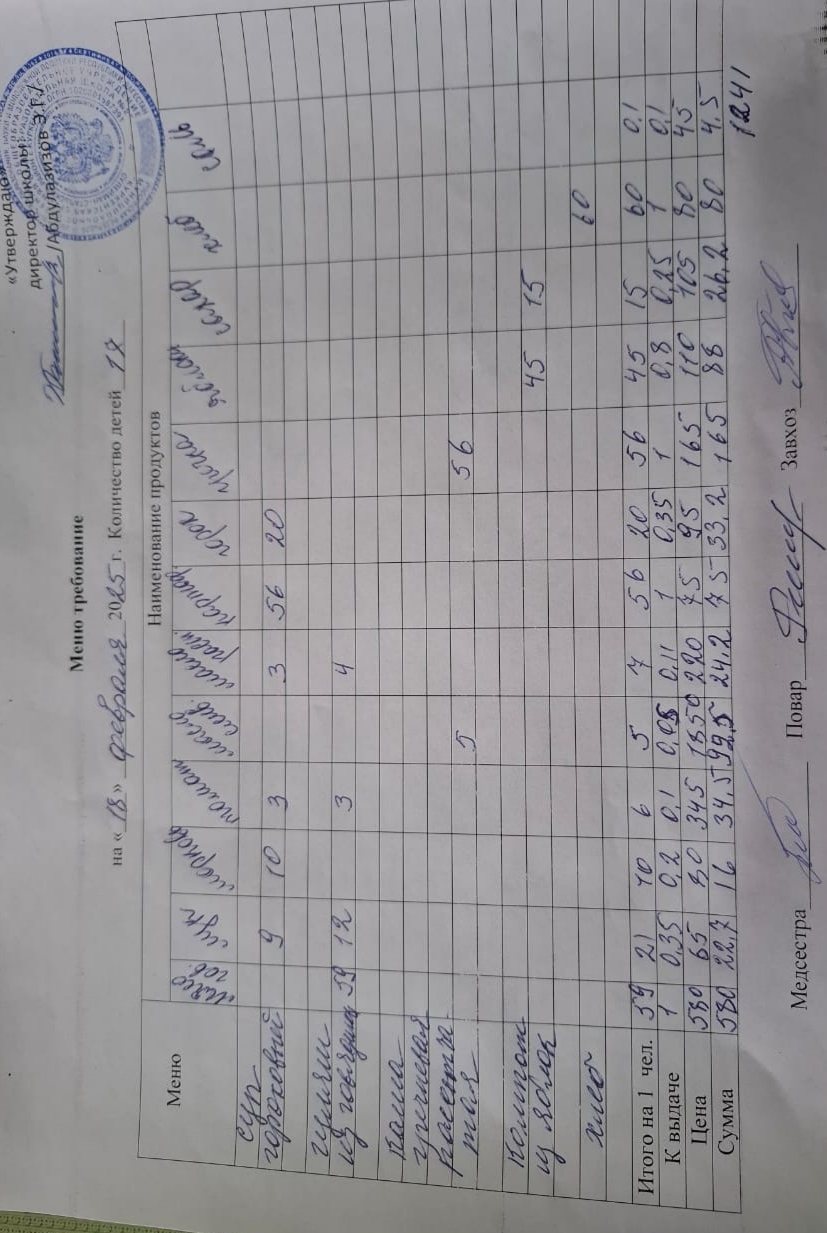 «Утверждаю»
директор школы
/Абдулазизов Э.Г./
Меню требование
на « 18 » февраля 2025 г. Количество детей
Меню Наименование продуктов
мясо гов. лук морковь томат масло слив. масло раст. картоф. горох гречка яблоки сахар хлеб соль
суп
гороховый 9 10 3 3 56 20
гуляш
из говядины 59 12 3 4
Каша
гречневая
рассыпча- 5 56
тая
Компот
из яблок 45 15
хлеб 60
Итого на 1 чел. 59 21 10 6 5 7 56 20 56 45 15 60 0,1
К выдаче 1 0,35 0,2 0,1 0,05 0,11 1 0,35 1 0,8 0,25 1 0,1
Цена 580 65 80 345 1850 220 75 95 165 110 105 80 45
Сумма 580 22,7 16 34,5 92,5 24,2 75 33,2 165 88 26,2 80 4,5
1241
Медсестра Повар Завхоз